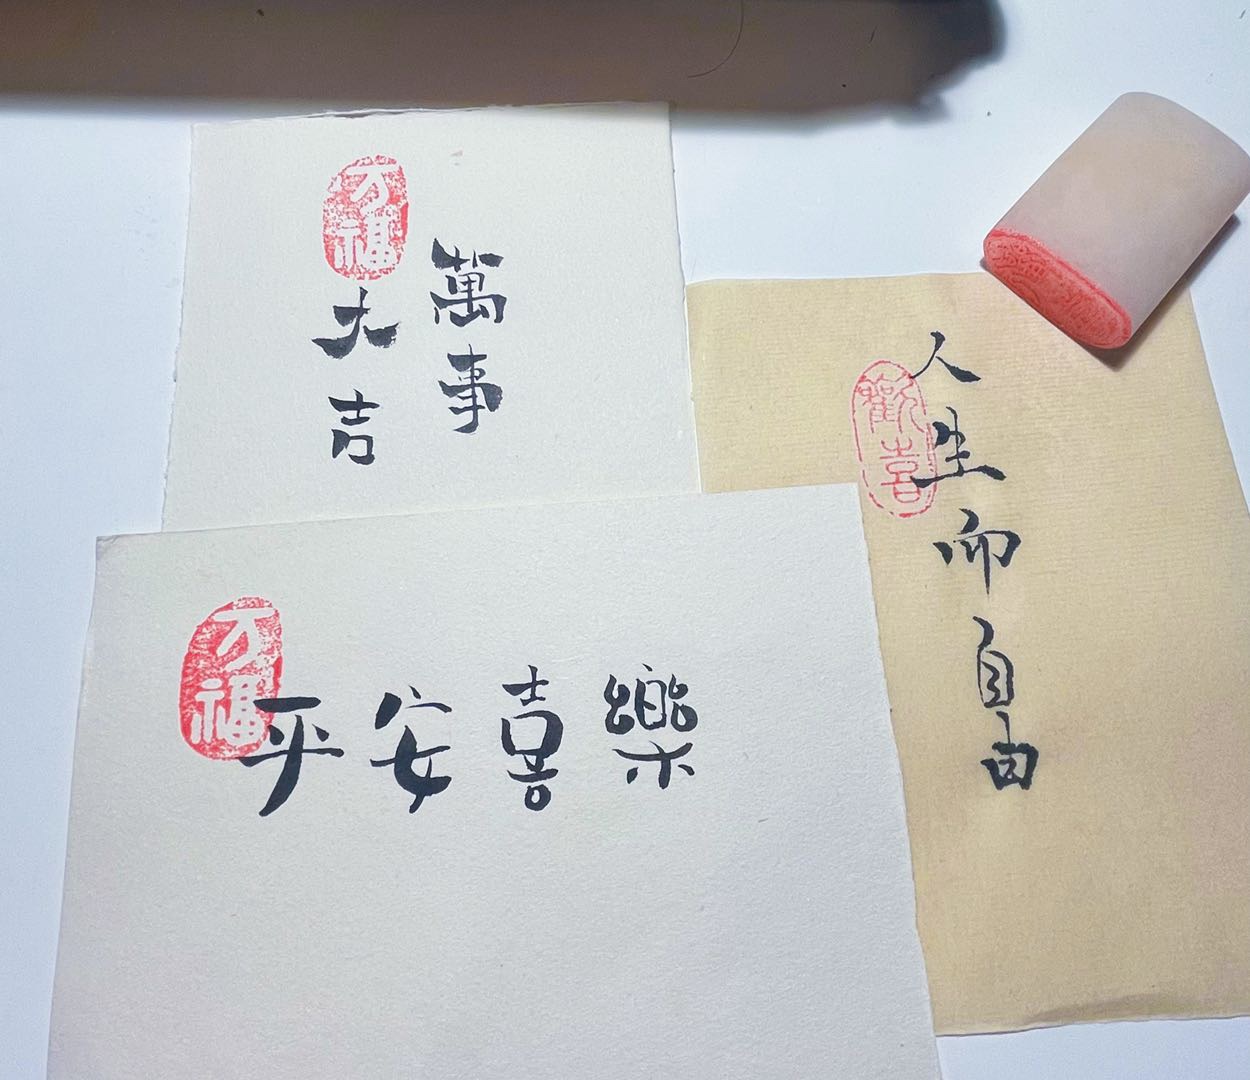 万福
萬事
大吉
歡喜
人生而自由
万福
平安喜樂